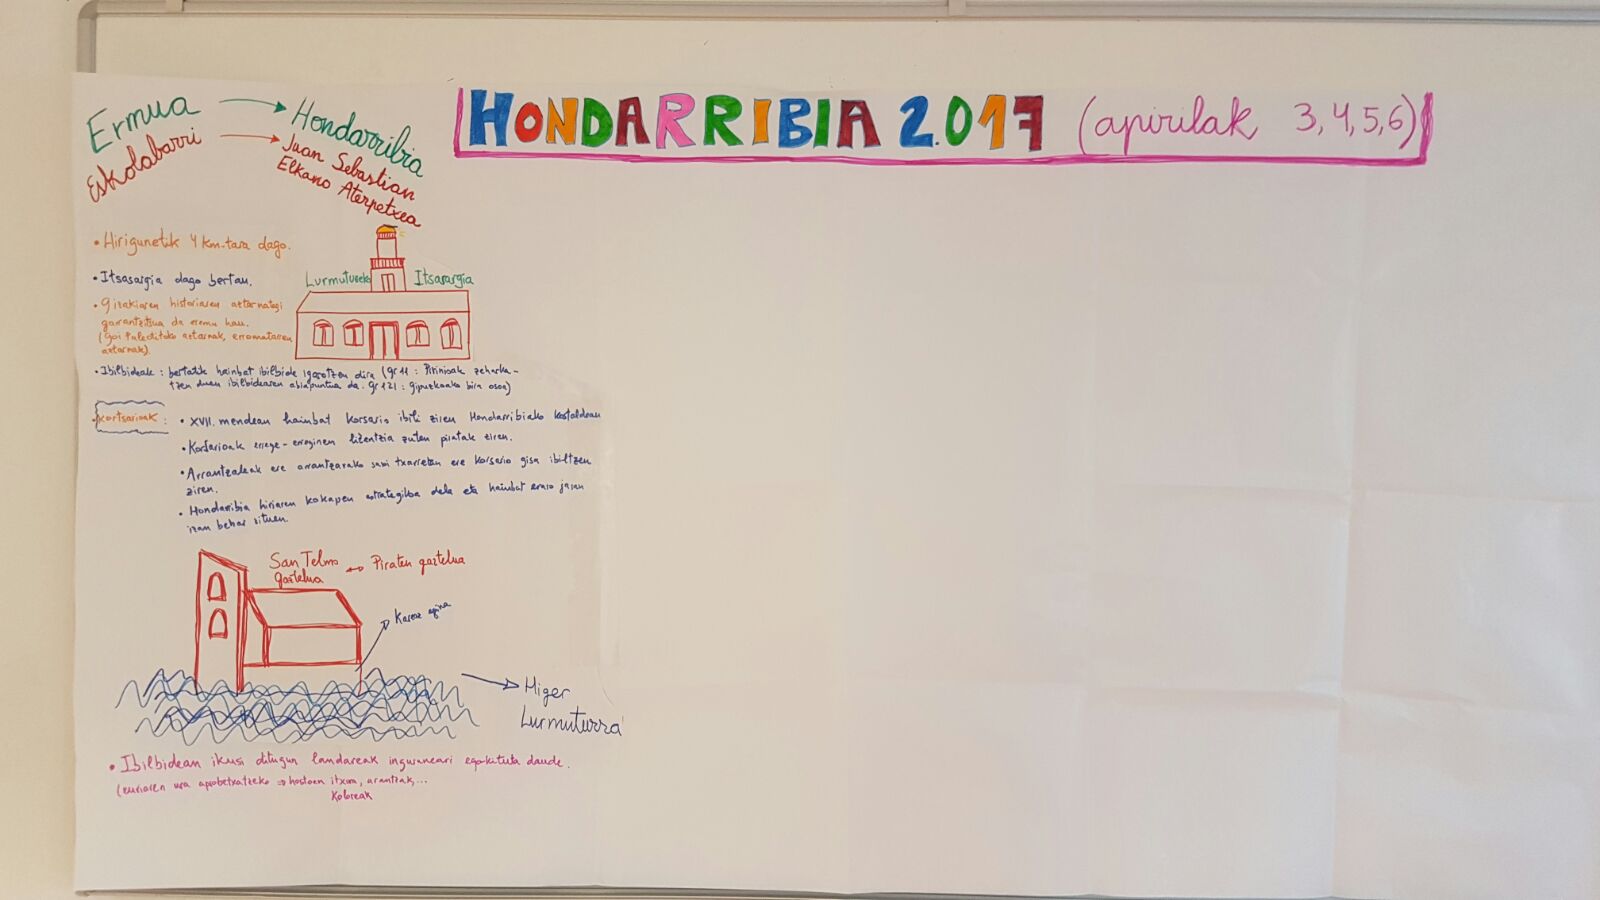 HONDARRIBIA 2.017 (apirilak 3, 4, 5, 6)
Ermua → Hondarribia
Eskolabarri → Juan Sebastian
Elkano Aterpetxea
• Hirigunetik 4 km-tara dago.
• Itsasargia dago bertan.
Lurmuturreko Itsasargia
• Gizakiaren historiaren aztarnategi
garrantzitsua da eremu hau.
(Goi Paleolitoko aztarnak, erromatarren
aztarnak).
• Ibilbideak : bertatik hainbat ibilbide igarotzen dira (gr 11 : Pirinioak zeharka-
tzen duen ibilbidearen abiapuntua da. gr 121 : gipuzkoako bira osoa)
• Kortsarioak : • XVII. mendean hainbat korsario ibili ziren Hondarribiako kostaldean
• Korsarioak errege-erreginen lizentzia zuten piratak ziren.
• Arrantzaleak ere arrantzarako sasi txarretan ere korsario gisa ibiltzen
ziren.
• Hondarribia hiriaren kokapen estrategikoa dela eta hainbat eraso jasan
izan behar zituen.
San Telmo ↔ Piraten gaztelua
gaztelua
Karez egina
→ Higer
Lurmuturra
• Ibilbidean ikusi ditugun landareak inguruneari egokituta daude.
(euriaren ura aprobetxatzeko ⇒ hostoen itxura, arantzak,...
Koloreak